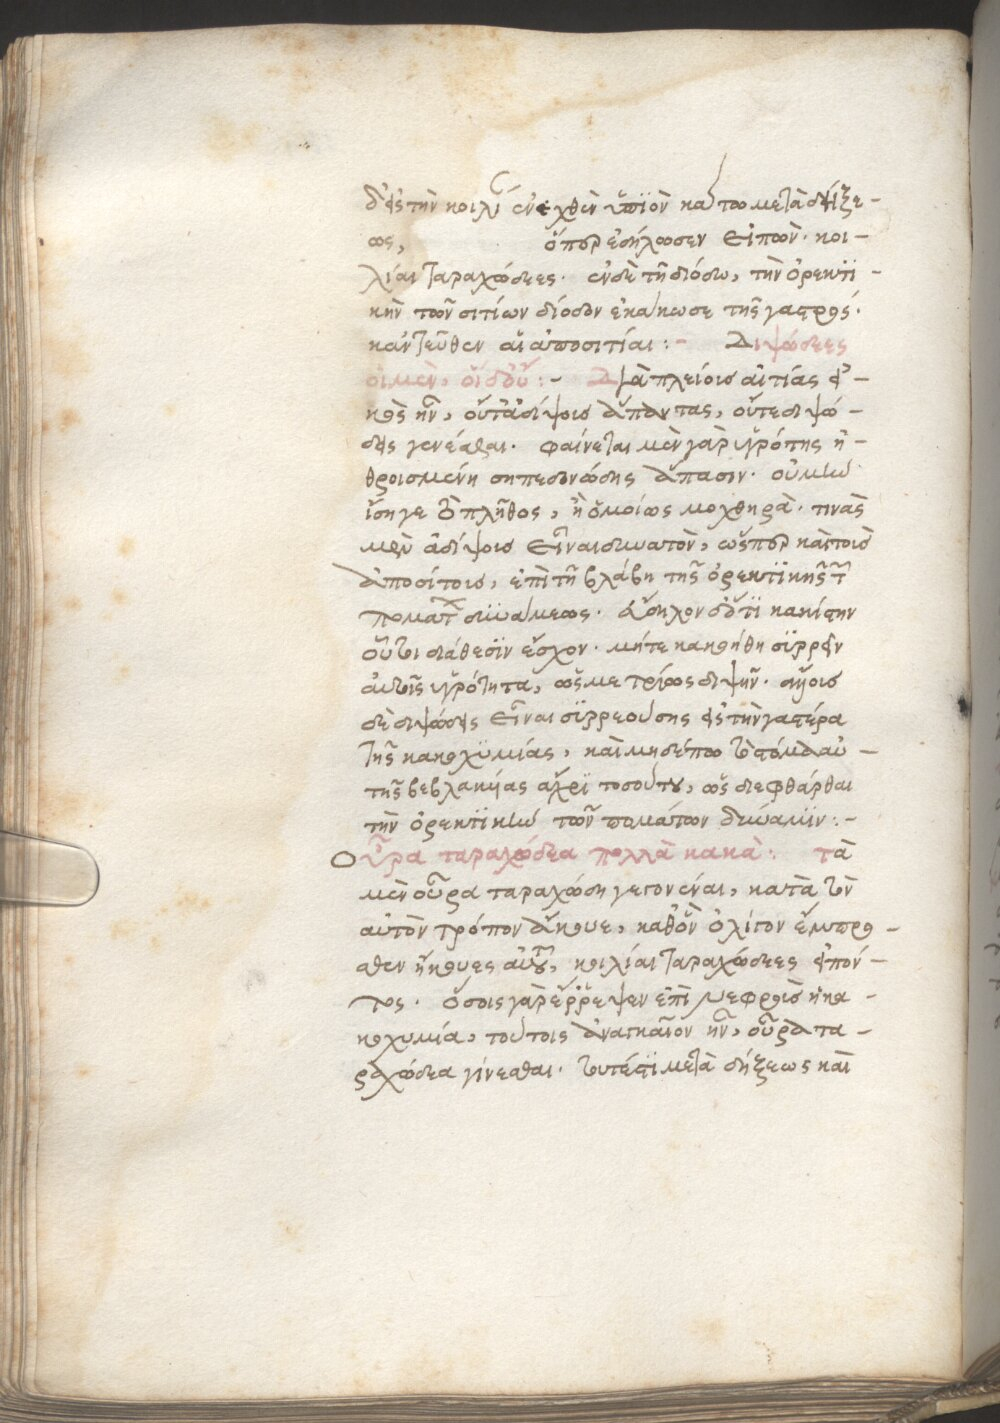 δ' εἰς τὴν κοιλί ἐνεχθὲν ὑπϊὸν κάτω μετὰ δήξε-
ως, ὅπερ ἐδήλωσεν εἰπὼν· κοι-
λίαι ταραχώδεες· ἐν δὲ τῇ διόδω, τὴν ὀρεκτι-
κὴν τῶν σιτίων δίοδον ἐκάκωσε τῆς γαστρός·
κἀντεῦθεν αἱ ἀποσιτίαι:- Διψώδεες
οἱ μὲν, οἱ δ' οὔ:- Διὰ πλείοις αἰτίας εἰ-
κὸς ἦν, οὔτ' ἀδίψοις ἅπαντας, οὔτε διψώ-
δεις γενέσθαι· φαίνεται μὲν γὰρ ὑγρότης ἠ-
θροισμένη σηπεδονώδης ἅπασιν· οὐ μὴν
ἴση γε τὸ πλῆθος, ἢ ὁμοίως μοχθηρὰ· τινὰς
μὲν ἀδίψοις εἶναι δυνατὸν, ὥσπερ καὶ τοῖς
ἀποσίτοις, ἐπὶ τῇ βλάβη τῆς ὀρεκτϊκῆς τ
πομάτ δυνάμεως· ἄδηλον δ' ὅτι κακίστην
οὗτοι διάθεσϊν ἔσχον· μήτε κακοήθη συρρεῖν
αὐτοῖς ὑγρότητα, ὡς μετρίως διψῆν· ἐνίοις
δὲ διψώδεις εἶναι συρρεούσης εἰς τὴν γαστέρα
τῆς κακοχυμίας, καὶ μηδέπω τὸ στόμα αὐ-
τῆς βεβλακυίας ἄχρϊ τοσούτου, ὡς διεφθάρθαι
τὴν ὀρεκτϊκὴν τῶν πομάτων δύναμϊν:-
Οὖρα ταραχώδεα πολλὰ κακὰ: τὰ
μὲν οὖρα ταραχώδη γεγονέναι, κατὰ τὸν
αὐτὸν τρόπον ἄκουε, καθ' ὃν ὀλίγον ἔμπρο-
σθεν ἤκουες αὐτοῦ, κοιλίαι ταραχώδεες εἰπόν-
τος· ὅσοις γὰρ ἔρρεψεν ἐπὶ νεφροὺς ἡ κα-
κοχυμία, τούτοις ἀναγκαῖον ἦν, οὖρα τα-
ραχώδεα γίνεσθαι· τουτέστι μετὰ δήξεως καὶ